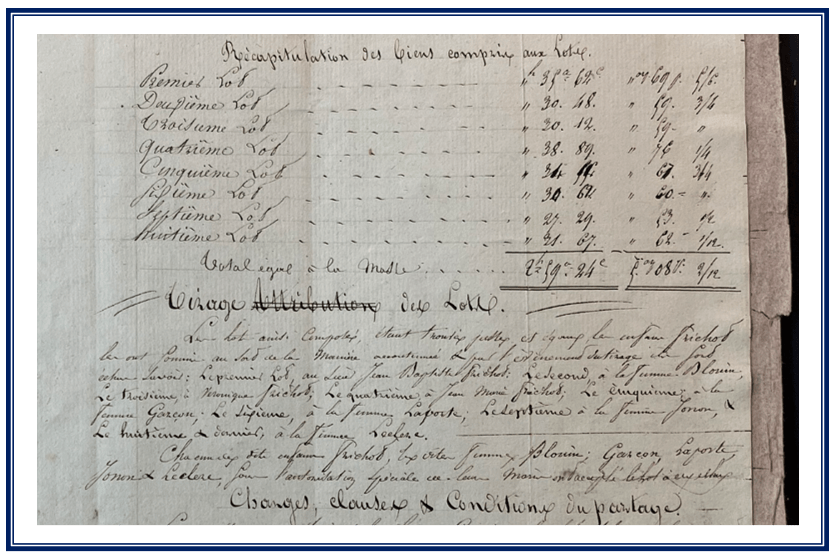 Récapitulation des biens compris aux Lots.
Premier Lot " 35 a 62 c " 69
Deuxième Lot " 30. 48. " 59. 3/4
Troisième Lot " 30. 12. " 59. "
Quatrième Lot " 38. 89. " 76 1/4
Cinquième Lot " 67. 3/4
Sixième Lot " 30. 62 " 60 "
Septième Lot " 27. 29. " 53. 1/2
Huitième Lot " 31. 67. " 62 1/12.
Total égal à la Masse 2 h 59 a 24 c 08 2/12
Tirage Attribution des Lots.
Les lots ainsi composés, étant trouvés justes et égaux les enfans Frichot
les ont tirés au sort de la Manière accoutumée & par l'évènement du tirage
échus savoir: Le premier Lot, au sieur Jean Baptiste Frichot; Le Second à la femme Blouin,
Le troisième, à Véronique Frichot; Le quatrième, à Jean Marie Frichot; Le Cinquième, à la
femme Garçon; Le Sixième, à la femme Laporte; Le Septième à la femme Jonon, &
Le huitième & dernier, à la femme Leclerc.
Chacun des dits enfans Frichot, les dites femmes Blouin; Garçon, Laporte,
Jonon & Leclerc, sous l'autorisation spéciale de leur Mari ont accepté le lot à eux échu
Charges, clauses & Conditions du partage.